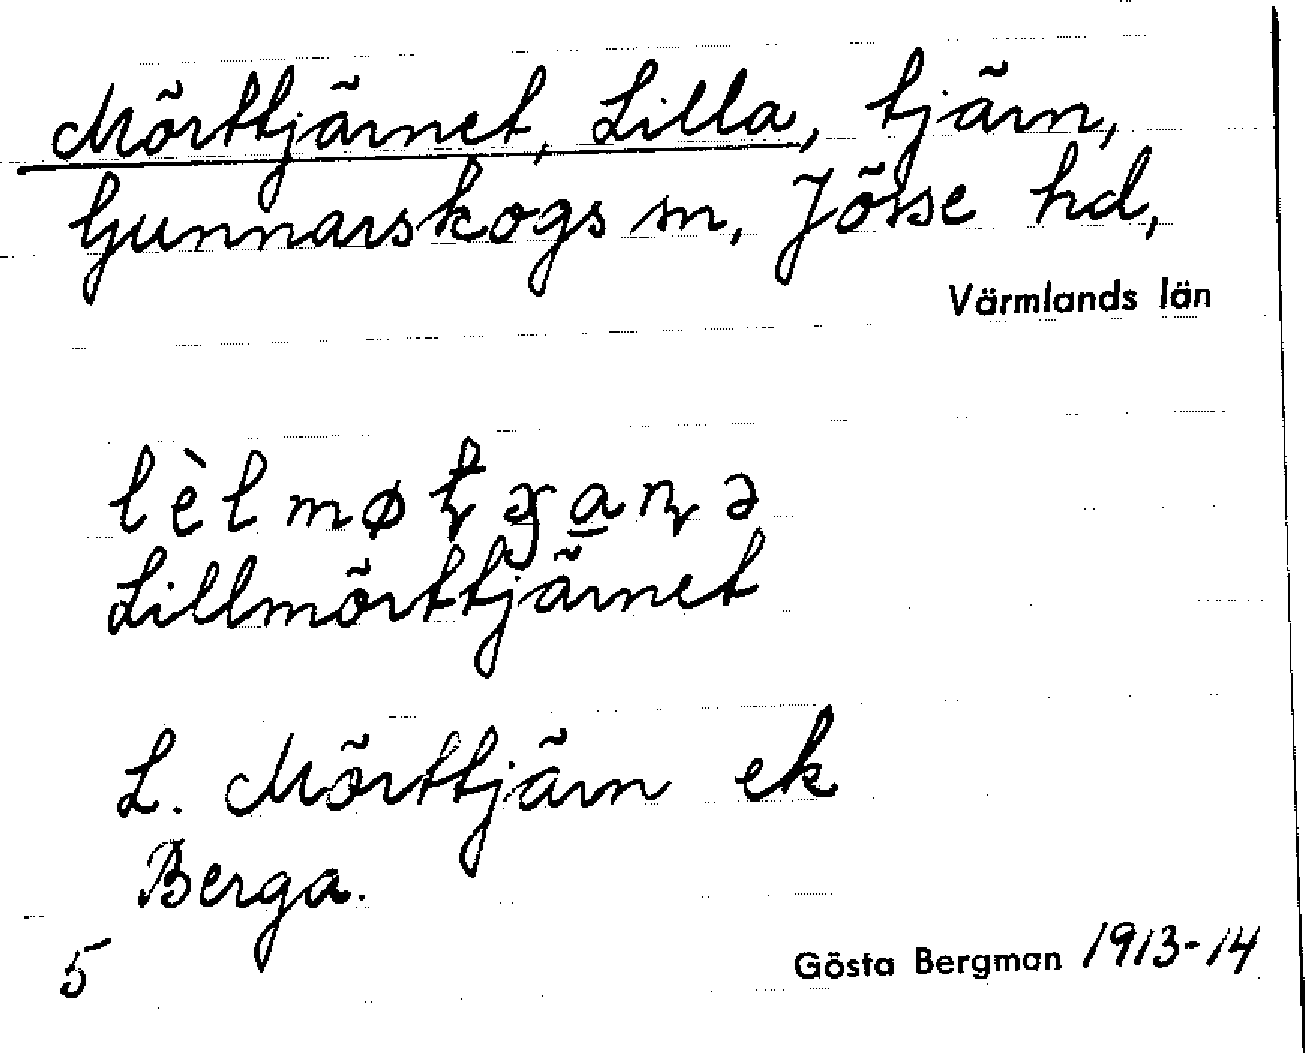 Mörttjärnet, Lilla, tjärn,
Gunnarskogs sn, Jösse hd,
Värmlands län
Lillmörttjärnet
L. Mörttjärn ek
Berga.
5
Gösta Bergman 1913-14